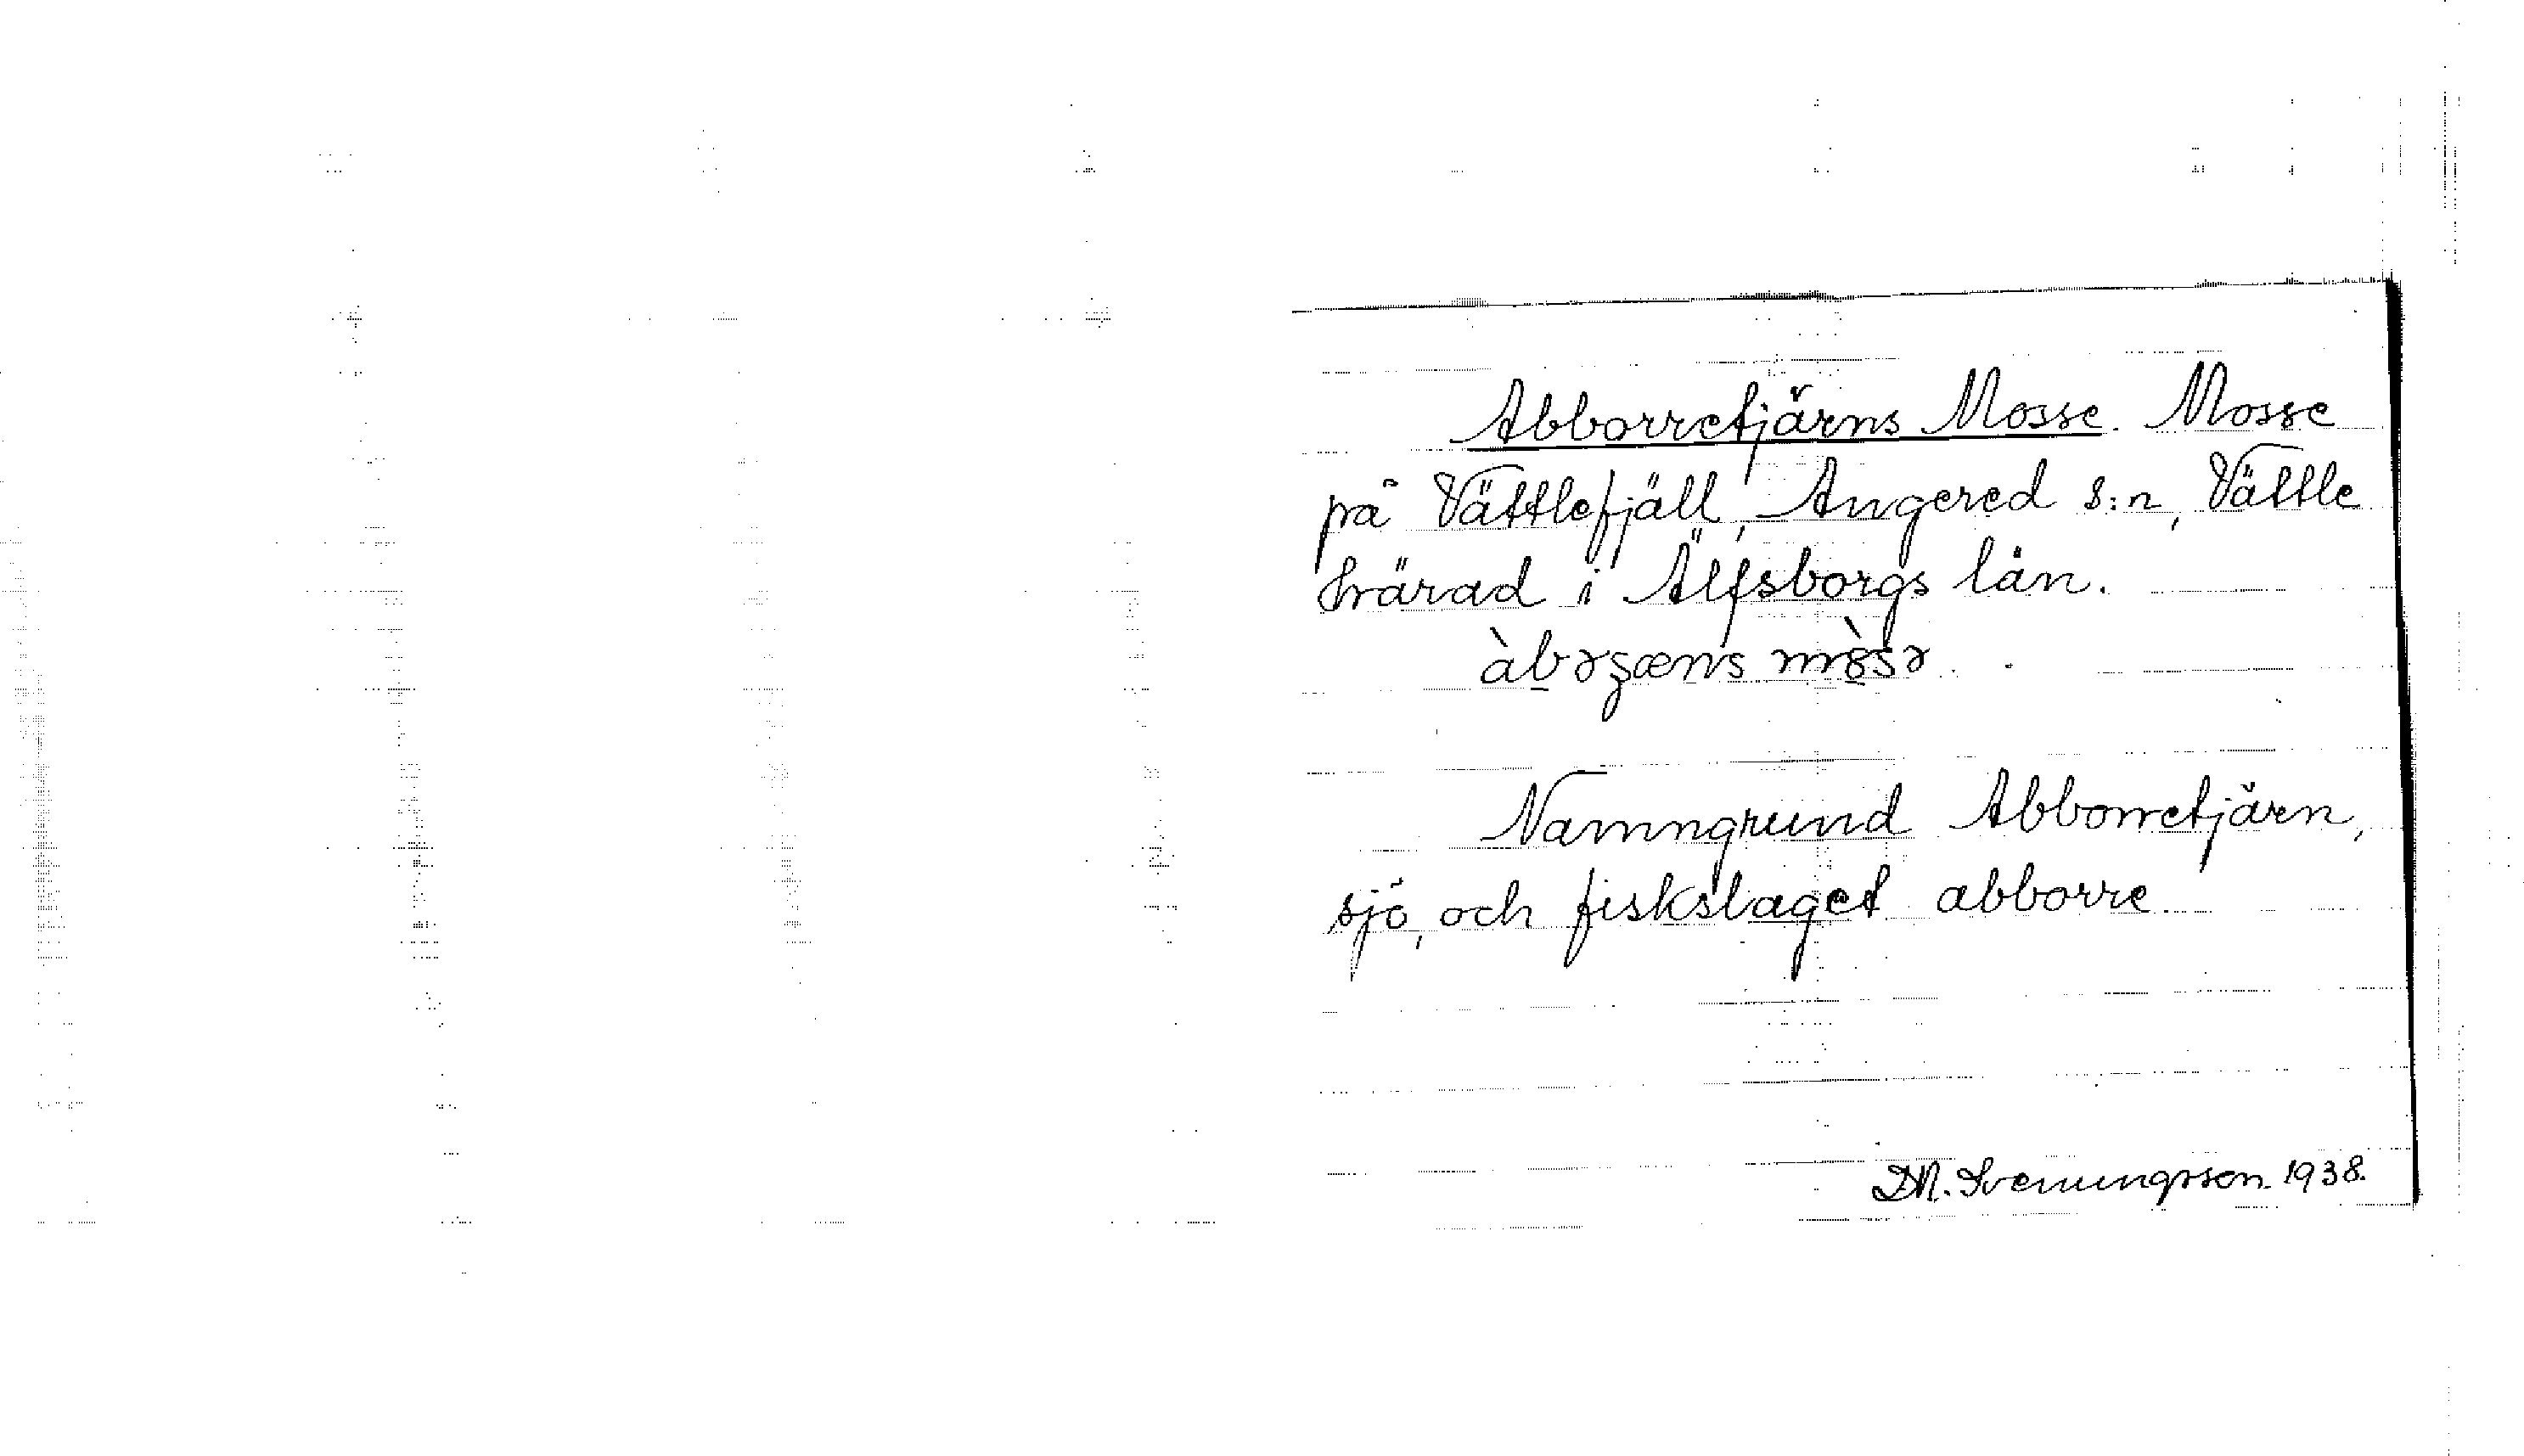 Abborretjärns Mosse. Mosse
på Vättlefjäll, Angered s:n, Vättle
härad i Älfsborgs län.
àbəʒæns mòsə
Namngrund Abborretjärn,
sjö, och fiskslaget abborre
D.N. Svenungsson 1938.